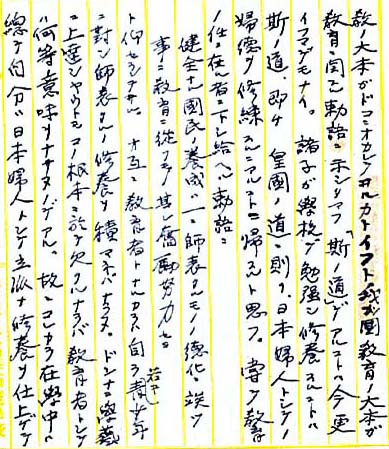 教ノ大本ガドコニオカレアルカトイフト我ガ国教育ノ大本ガ
教育ニ関スル勅語ニ示シタマフ「斯ノ道」デアルコトハ今更
イフマデモナイ。諸子ガ學校デ勉强シ修養スルコトハ
斯ノ道、即チ皇国ノ道ニ則リ、日本婦人トシテノ
婦德ヲ修練スルニアルコトニ帰スルト思フ。嘗テ教育
ノ任ニ在ル者ニ下シ給ヘル勅語ニ
健全ナル國民ノ養成ハ一ニ師表タルモノノ德化ニ竢ツ
事ニ教育ニ從フ者其レ奮励努力セヨ
ト仰セラレテヰル。オ互ニ教育者トナルカラハ自ラ青少年
ニ對シ師表タルノ修養ヲ積マネバナラヌ。ドンナニ學藝
ニ上達シヤウトモコノ根本ニ於テ欠クルナラバ教育者トシテ
ハ何等意味ヲナサヌノデアル。故ニコレカラ在學中ニ
總テ自分ハ日本婦人トシテ立派ナ修養ヲ仕上ゲテ